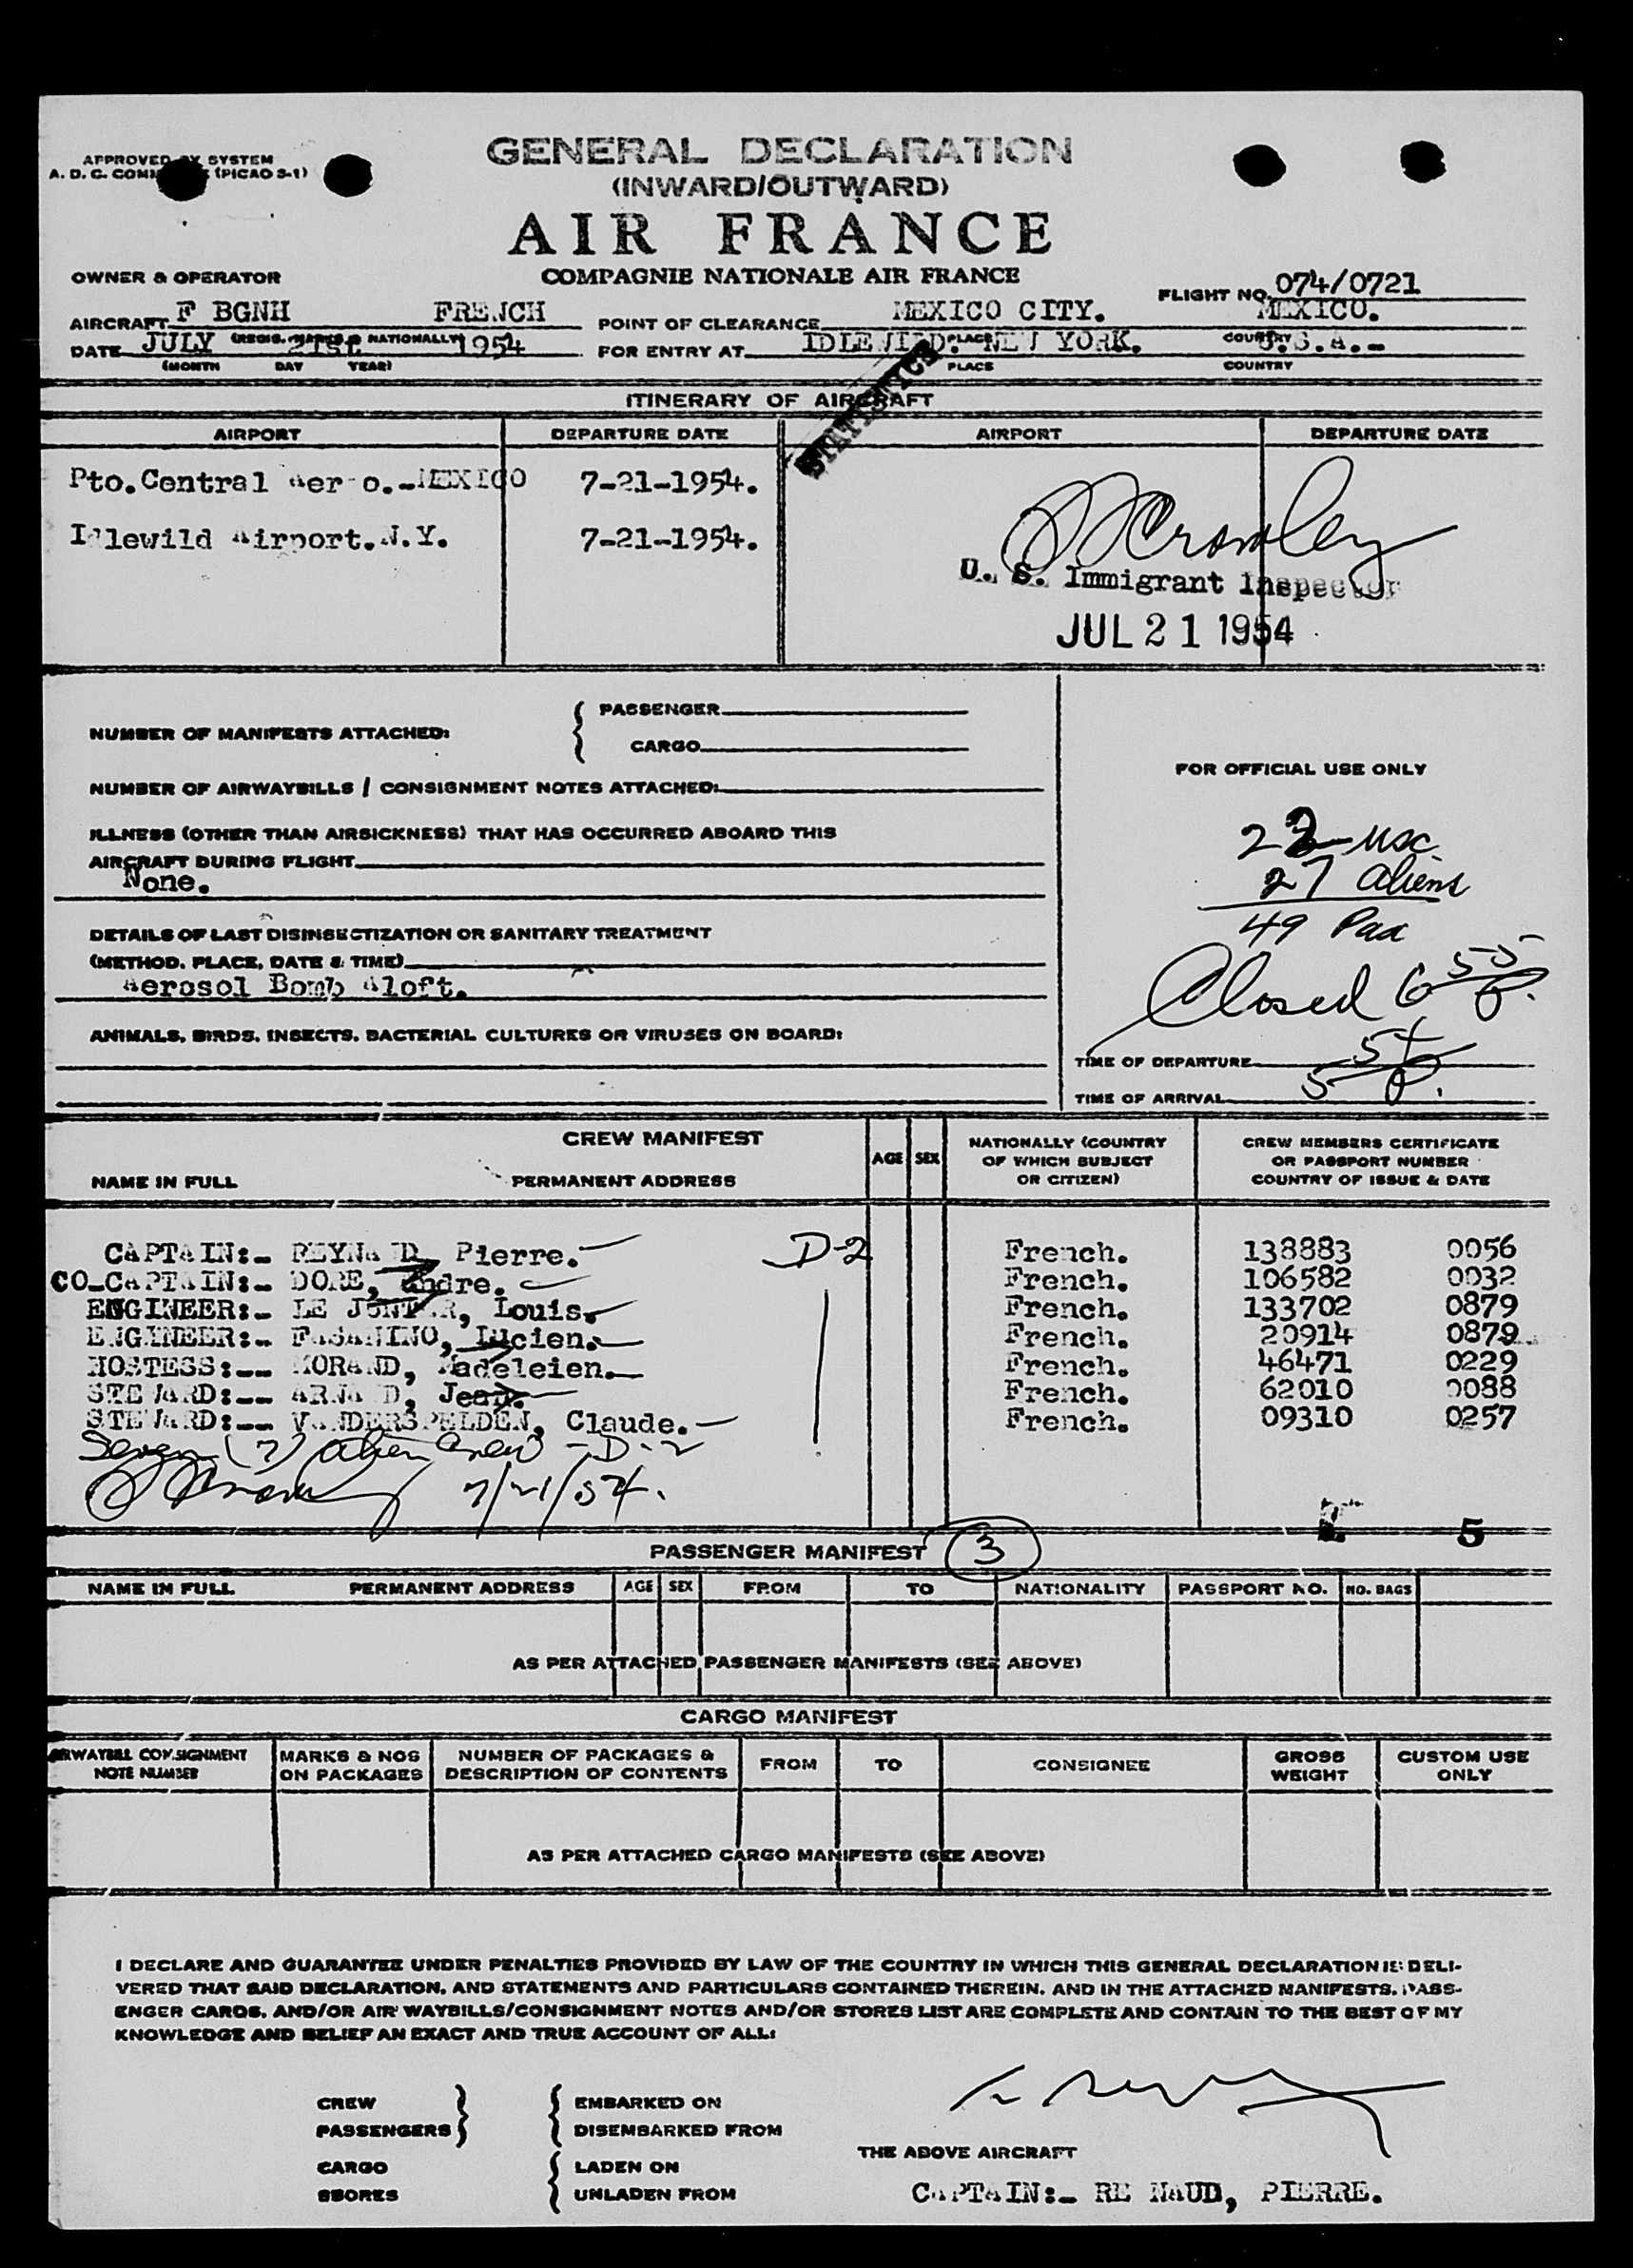 APPROVED BY SYSTEM
A. D. C. (PICAO S-1)
GENERAL DECLARATION
(INWARD/OUTWARD)
AIR FRANCE
COMPAGNIE NATIONALE AIR FRANCE
OWNER & OPERATOR
FLIGHT NO. 074/0721
AIRCRAFT F BGNH FRENCH
POINT OF CLEARANCE MEXICO CITY. MEXICO.
(REGIS. MARKS & NATIONALLY)
PLACE COUNTRY
DATE JULY 21st 1954
FOR ENTRY AT IDLEWILD. NEW YORK. U.S.A.-
(MONTH DAY YEAR)
PLACE COUNTRY
STATISTICS
ITINERARY OF AIRCRAFT
AIRPORT DEPARTURE DATE AIRPORT DEPARTURE DATE
Pto.Central Aero.-MEXICO 7-21-1954.
Idlewild Airport.N.Y. 7-21-1954.
Cromley
U. S. Immigrant Inspector
JUL 21 1954
NUMBER OF MANIFESTS ATTACHED: { PASSENGER
CARGO
NUMBER OF AIRWAYBILLS / CONSIGNMENT NOTES ATTACHED:
ILLNESS (OTHER THAN AIRSICKNESS) THAT HAS OCCURRED ABOARD THIS
AIRCRAFT DURING FLIGHT
None.
DETAILS OF LAST DISINSECTIZATION OR SANITARY TREATMENT
(METHOD, PLACE, DATE & TIME)
Aerosol Bomb Aloft.
ANIMALS, BIRDS, INSECTS, BACTERIAL CULTURES OR VIRUSES ON BOARD:
FOR OFFICIAL USE ONLY
22 USC
27 Aliens
49 Pax
Closed 6 55 P.
TIME OF DEPARTURE
TIME OF ARRIVAL 5 54 P.
CREW MANIFEST
NAME IN FULL PERMANENT ADDRESS
AGE SEX
NATIONALLY (COUNTRY
OF WHICH SUBJECT
OR CITIZEN)
CREW MEMBERS CERTIFICATE
OR PASSPORT NUMBER
COUNTRY OF ISSUE & DATE
CAPTAIN:- REYNAUD, Pierre. D-2 French. 138883 0056
CO-CAPTAIN:- DORE, Andre. French. 106582 0032
ENGINEER:- LE JONTER, Louis. French. 133702 0879
ENGINEER:- FASANINO, Lucien. French. 20914 0879
HOSTESS:-- MORAND, Madeleien. French. 46471 0229
STEWARD:-- ARNAUD, Jean. French. 62010 0088
STEWARD:-- VANDERSPELDEN, Claude. French. 09310 0257
Seven (7) alien crew - D-2
Cromley 7/21/54.
5
PASSENGER MANIFEST 3
NAME IN FULL PERMANENT ADDRESS AGE SEX FROM TO NATIONALITY PASSPORT NO. NO. BAGS
AS PER ATTACHED PASSENGER MANIFESTS (SEE ABOVE)
CARGO MANIFEST
AIRWAYBILL CONSIGNMENT
NOTE NUMBER
MARKS & NOS
ON PACKAGES
NUMBER OF PACKAGES &
DESCRIPTION OF CONTENTS
FROM TO CONSIGNEE
GROSS
WEIGHT
CUSTOM USE
ONLY
AS PER ATTACHED CARGO MANIFESTS (SEE ABOVE)
I DECLARE AND GUARANTEE UNDER PENALTIES PROVIDED BY LAW OF THE COUNTRY IN WHICH THIS GENERAL DECLARATION IS DELI-
VERED THAT SAID DECLARATION, AND STATEMENTS AND PARTICULARS CONTAINED THEREIN, AND IN THE ATTACHED MANIFESTS, PASS-
ENGER CARGS, AND/OR AIR WAYBILLS/CONSIGNMENT NOTES AND/OR STORES LIST ARE COMPLETE AND CONTAIN TO THE BEST OF MY
KNOWLEDGE AND BELIEF AN EXACT AND TRUE ACCOUNT OF ALL:
CREW } { EMBARKED ON
PASSENGERS DISEMBARKED FROM
THE ABOVE AIRCRAFT
CARGO { LADEN ON
SBORES UNLADEN FROM
CAPTAIN:- RE NAUD, PIERRE.